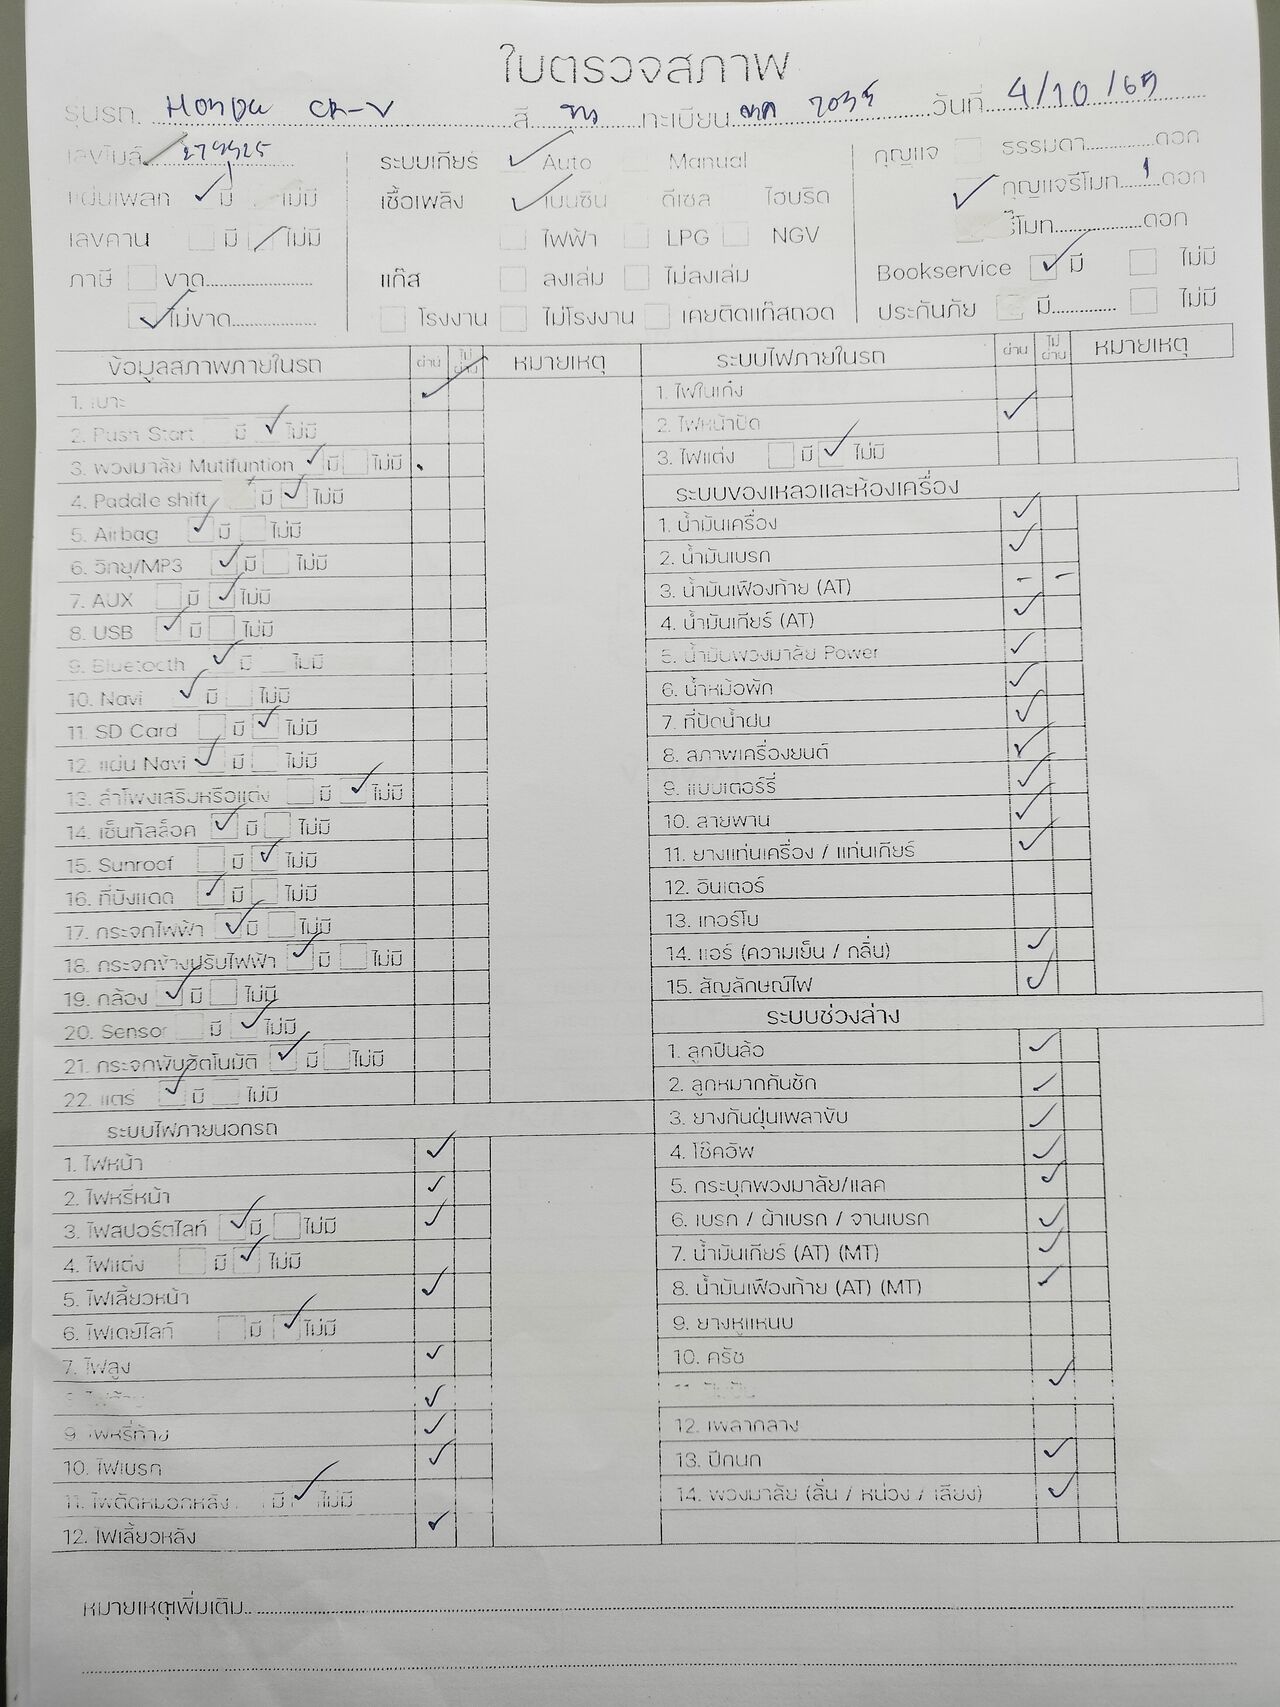 ใบตรวจสภาพ
รุ่นรถ Honda CR-V สี ทะเบียน 7035 วันที่ 4/10/65
เลขไมล์ ระบบเกียร์ Auto Manual กุญแจ ธรรมดา ดอก
แผ่นเพลท มี ไม่มี เชื้อเพลิง เบนซิน ดีเซล ไฮบริด กุญแจรีโมท 1 ดอก
เลขคาน มี ไม่มี ไฟฟ้า LPG NGV รีโมท ดอก
ภาษี ขาด แก๊ส ลงเล่ม ไม่ลงเล่ม Bookservice มี ไม่มี
ไม่ขาด โรงงาน ไม่โรงงาน เคยติดแก๊สถอด ประกันภัย มี ไม่มี
ข้อมูลสภาพภายในรถ ผ่าน ไม่ผ่าน หมายเหตุ
1. เบาะ
2. Push Start มี ไม่มี
3. พวงมาลัย Mutifuntion มี ไม่มี
4. Paddle shift มี ไม่มี
5. Airbag มี ไม่มี
6. วิทยุ/MP3 มี ไม่มี
7. AUX มี ไม่มี
8. USB มี ไม่มี
9. Bluetooth มี ไม่มี
10. Navi มี ไม่มี
11. SD Card มี ไม่มี
12. แผ่น Navi มี ไม่มี
13. ลำโพงเสริมหรือแต่ง มี ไม่มี
14. เซ็นทัลล็อค มี ไม่มี
15. Sunroof มี ไม่มี
16. ที่บังแดด มี ไม่มี
17. กระจกไฟฟ้า มี ไม่มี
18. กระจกข้างปรับไฟฟ้า มี ไม่มี
19. กล้อง มี ไม่มี
20. Sensor มี ไม่มี
21. กระจกพับอัตโนมัติ มี ไม่มี
22. แตร มี ไม่มี
ระบบไฟภายนอกรถ
1. ไฟหน้า
2. ไฟหรี่หน้า
3. ไฟสปอร์ตไลท์ มี ไม่มี
4. ไฟแต่ง มี ไม่มี
5. ไฟเลี้ยวหน้า
6. ไฟเดย์ไลท์ มี ไม่มี
7. ไฟสูง
9. ไฟหรี่ท้าย
10. ไฟเบรก
11. ไฟตัดหมอกหลัง มี ไม่มี
12. ไฟเลี้ยวหลัง
ระบบไฟภายในรถ ผ่าน ไม่ผ่าน หมายเหตุ
1. ไฟในเก๋ง
2. ไฟหน้าปัด
3. ไฟแต่ง มี ไม่มี
ระบบของเหลวและห้องเครื่อง
1. น้ำมันเครื่อง
2. น้ำมันเบรก
3. น้ำมันเฟืองท้าย (AT) - -
4. น้ำมันเกียร์ (AT)
5. น้ำมันพวงมาลัย Power
6. น้ำหม้อพัก
7. ที่ปัดน้ำฝน
8. สภาพเครื่องยนต์
9. แบตเตอร์รี่
10. สายพาน
11. ยางแท่นเครื่อง / แท่นเกียร์
12. อินเตอร์
13. เทอร์โบ
14. แอร์ (ความเย็น / กลิ่น)
15. สัญลักษณ์ไฟ
ระบบช่วงล่าง
1. ลูกปืนล้อ
2. ลูกหมากคันชัก
3. ยางกันฝุ่นเพลาขับ
4. โช๊คอัพ
5. กระบุกพวงมาลัย/แลค
6. เบรก / ผ้าเบรก / จานเบรก
7. น้ำมันเกียร์ (AT) (MT)
8. น้ำมันเฟืองท้าย (AT) (MT)
9. ยางหูแหนบ
10. ครัช
12. เพลากลาง
13. ปีกนก
14. พวงมาลัย (ลื่น / หน่วง / เสียง)
หมายเหตุเพิ่มเติม